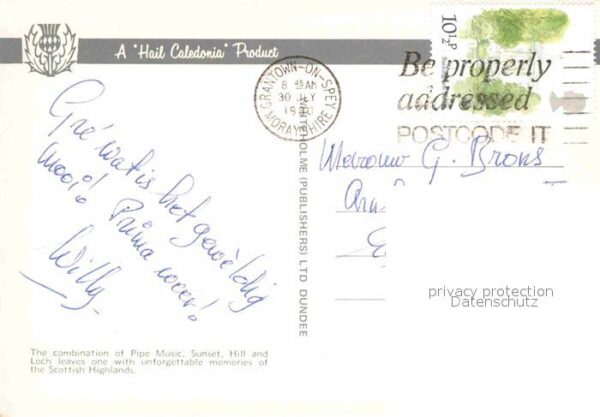 A "Hail Caledonia" Product
10½P
GRANTOWN-ON-SPEY
8 45 AM
30 JLY
MORAYSHIRE
Be properly
addressed
POSTCODE IT
Gré wat is het geweldig
mooi! Prima weer!
Willy
WHITEHOLME (PUBLISHERS) LTD DUNDEE
Mevrouw G. Brons
privacy protection
Datenschutz
The combination of Pipe Music, Sunset, Hill and
Loch leaves one with unforgettable memories of
the Scottish Highlands.